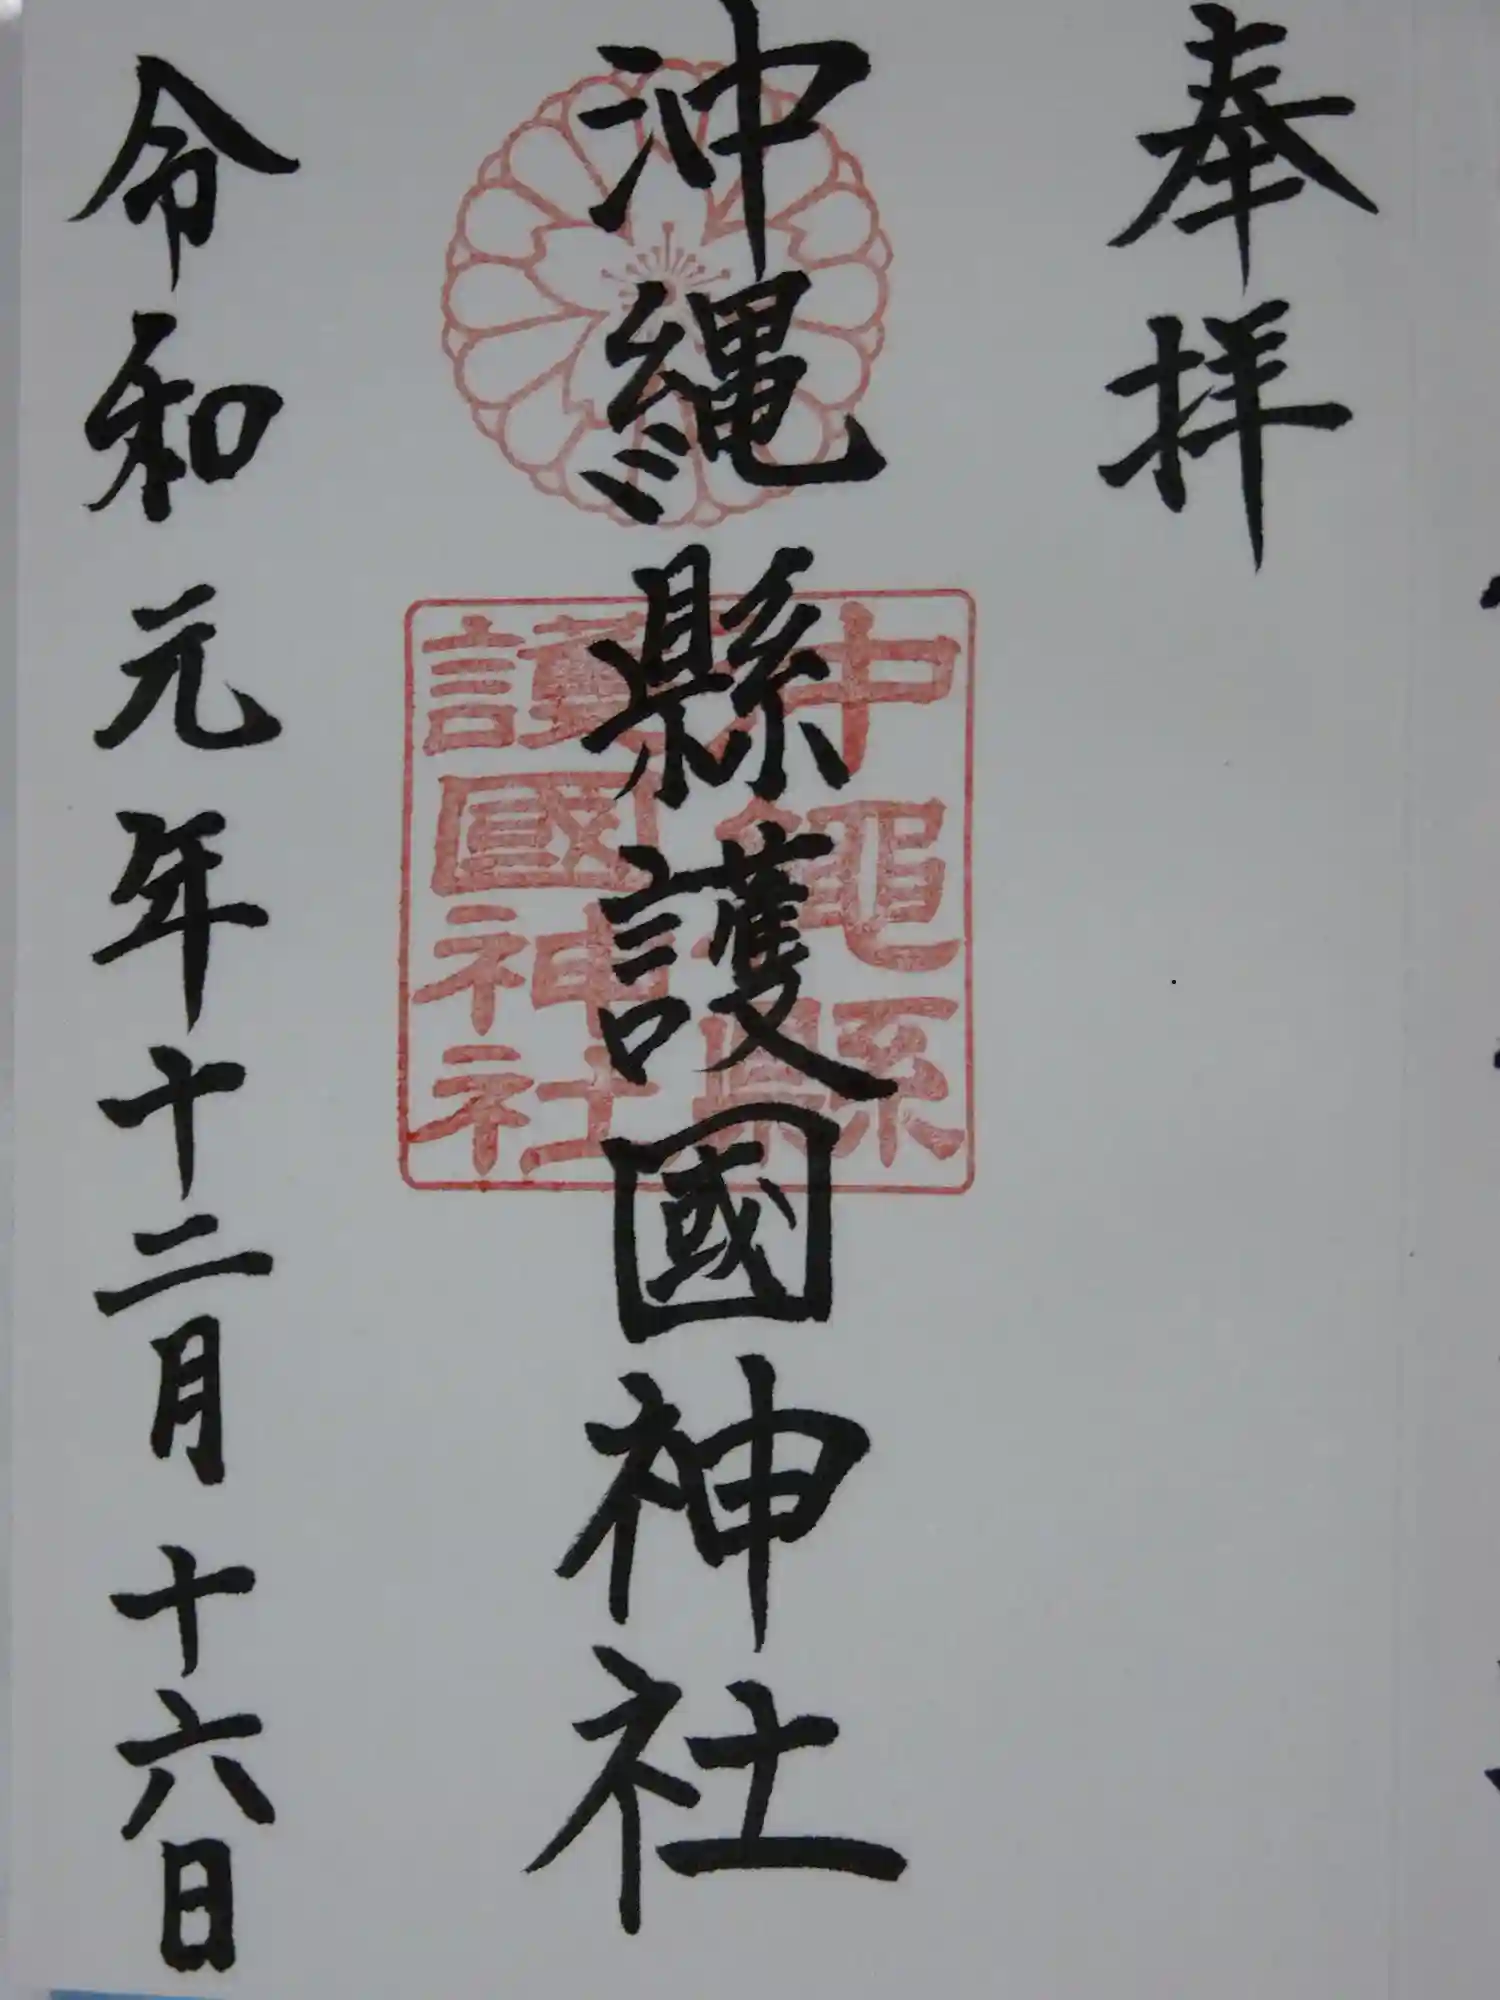 奉拝
沖縄縣護國神社
沖縄縣
護國神社
令和元年十二月十六日